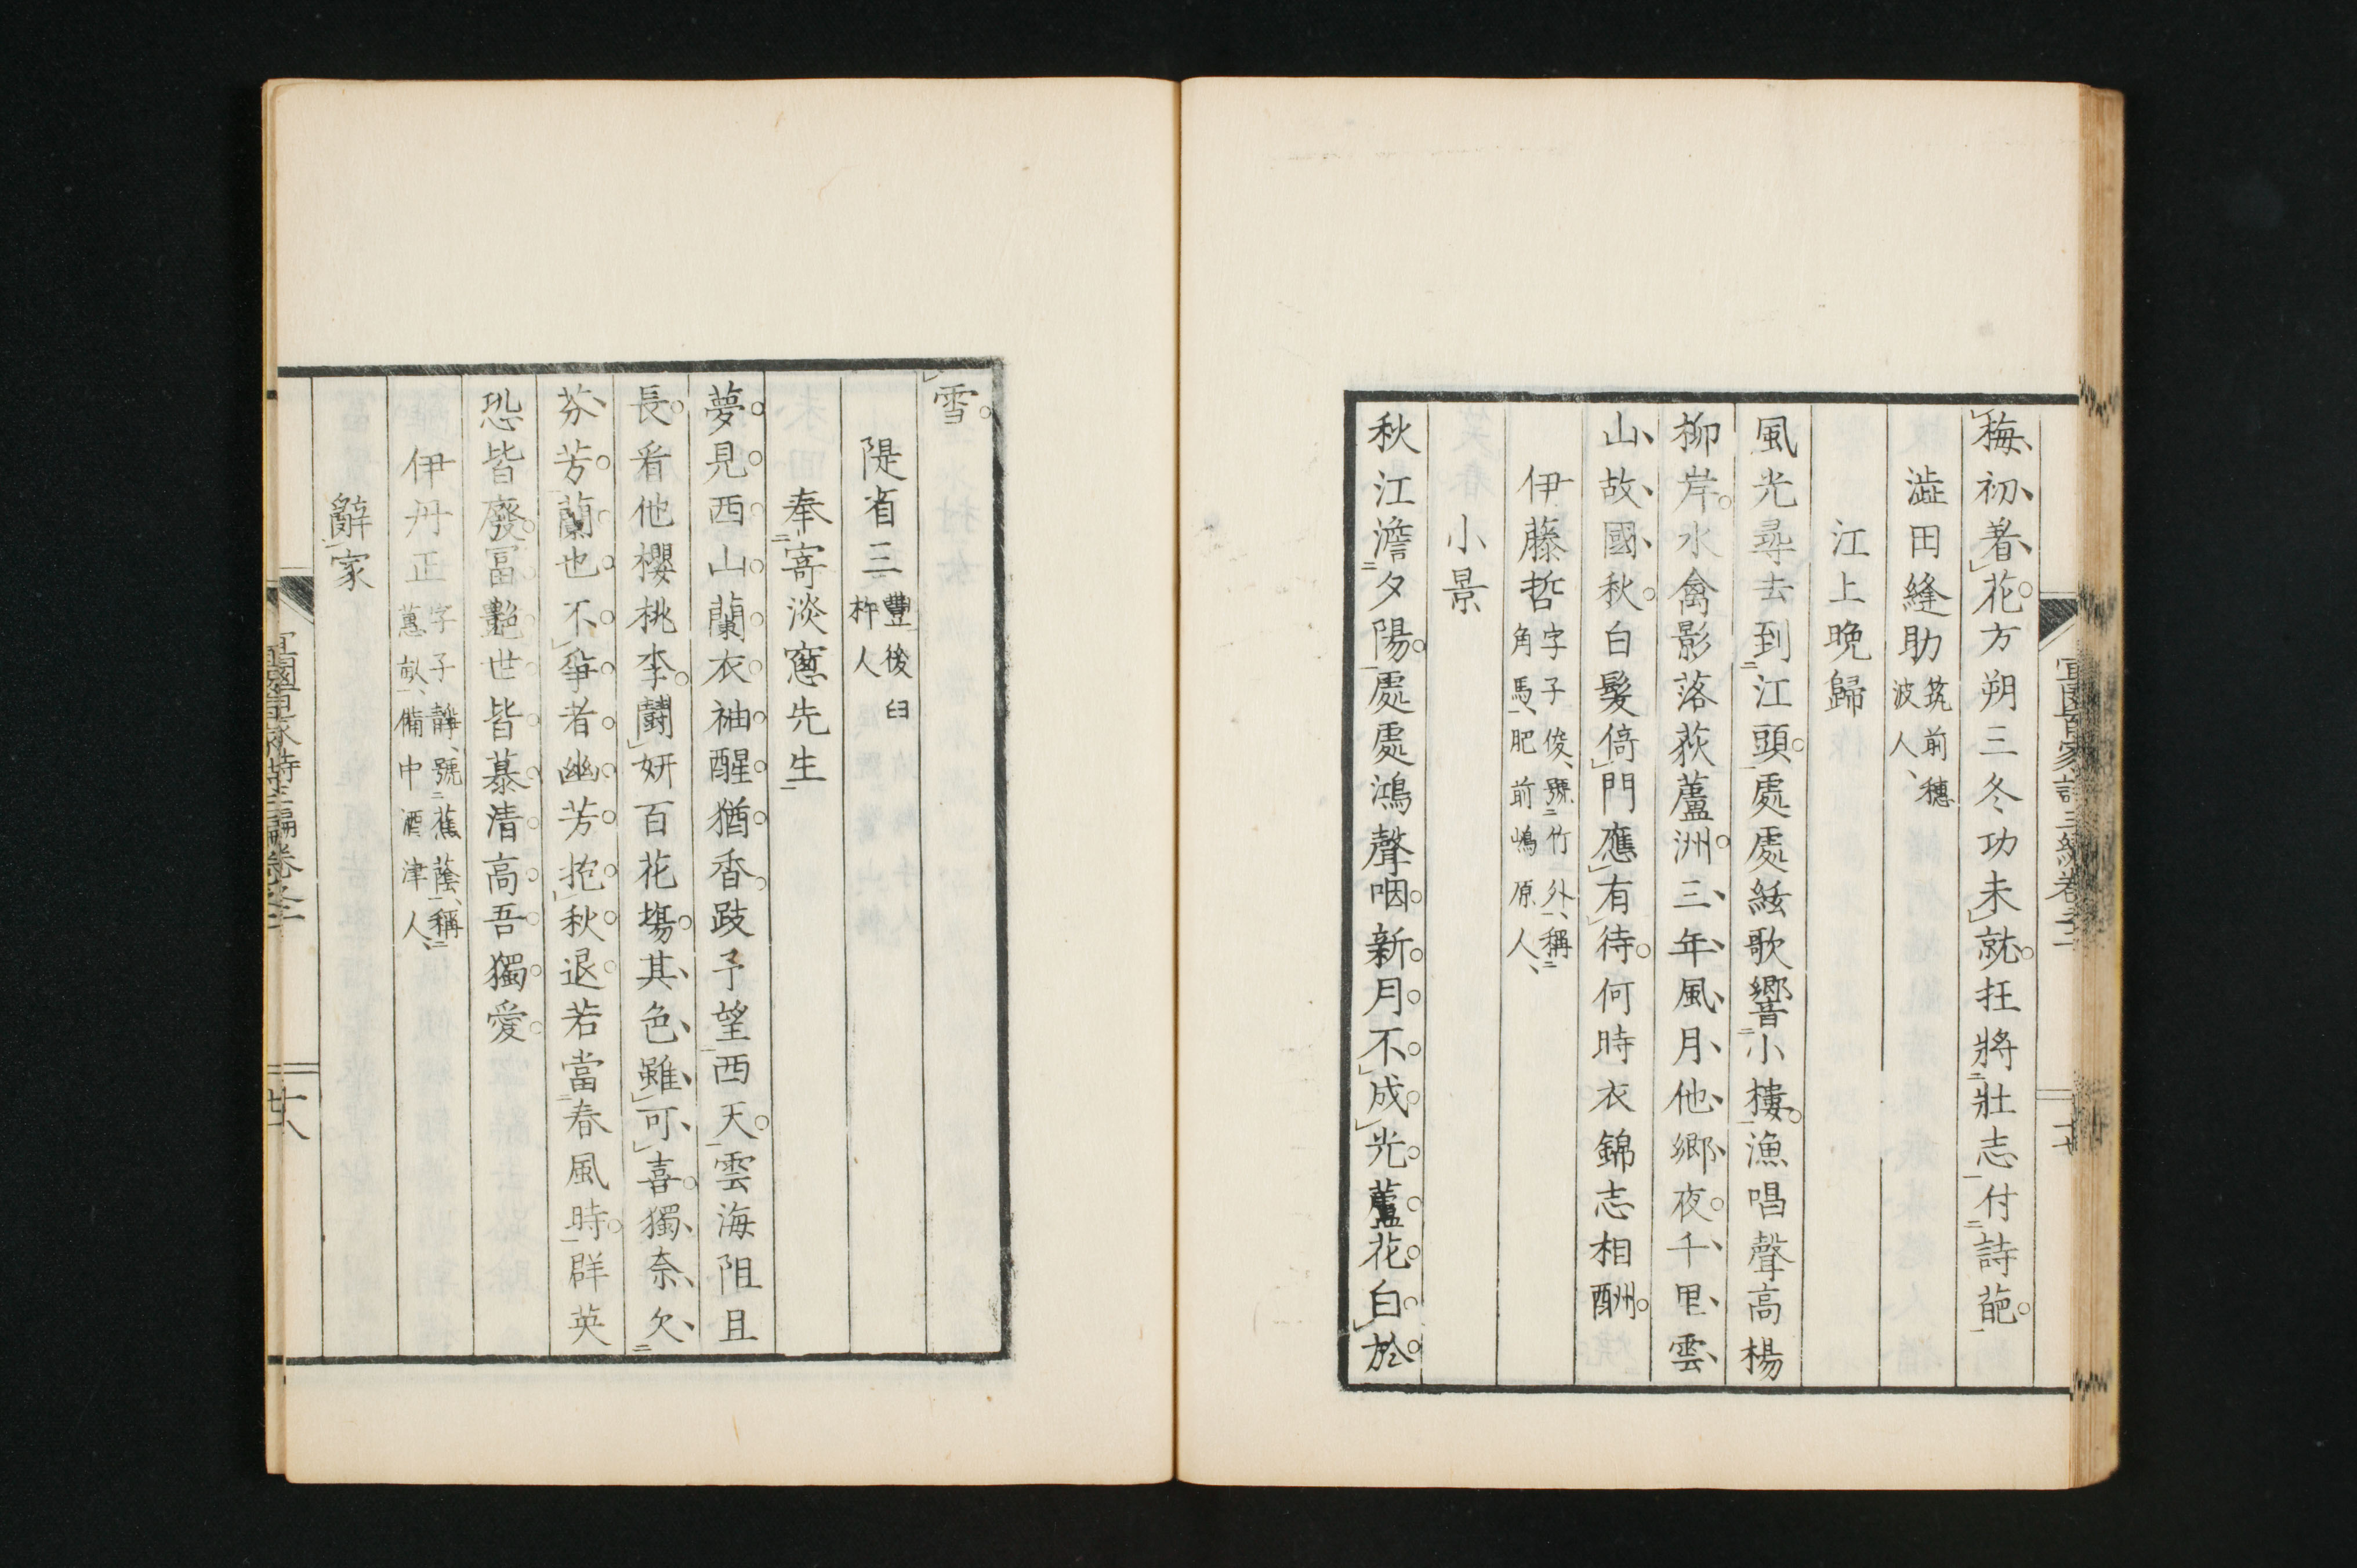 梅初著花方朔三冬功未就抂將壯志付詩葩
澁田縫助筑前穗波人
江上晩歸
風光尋去到江頭處處絃歌響小樓漁唱聲高楊
柳岸水禽影落荻蘆洲三年風月他鄉夜千里雲
山故國秋白髮倚門應有待何時衣錦志相酬
伊藤哲字子俊號竹外稱角馬肥前嶋原人
小景
秋江澹夕陽處處鴻聲咽新月不成光蘆花白於
雪
隄省三豐後臼杵人
奉寄淡窻先生
夢見西山蘭衣袖醒猶香跂予望西天雲海阻且
長看他櫻桃李鬪妍百花塲其色雖可喜獨奈欠
芬芳蘭也不爭者幽芳抱秋退若當春風時群英
恐皆廢冨艷世皆慕清高吾獨愛
伊丹正字子靜號蕉蔭稱蕙畝備中酒津人
辭家
宜園百家詩三編卷之二
廿八